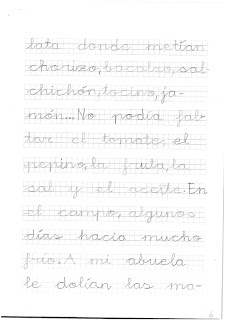 lata donde metían
chorizo, bacalao, sal-
chichón, tocino, ja-
món... No podía fal-
tar el tomate, el
pepino, la fruta, la
sal y el aceite. En
el campo, algunos
días hacía mucho
frío. A mi abuela
le dolían las ma-
6